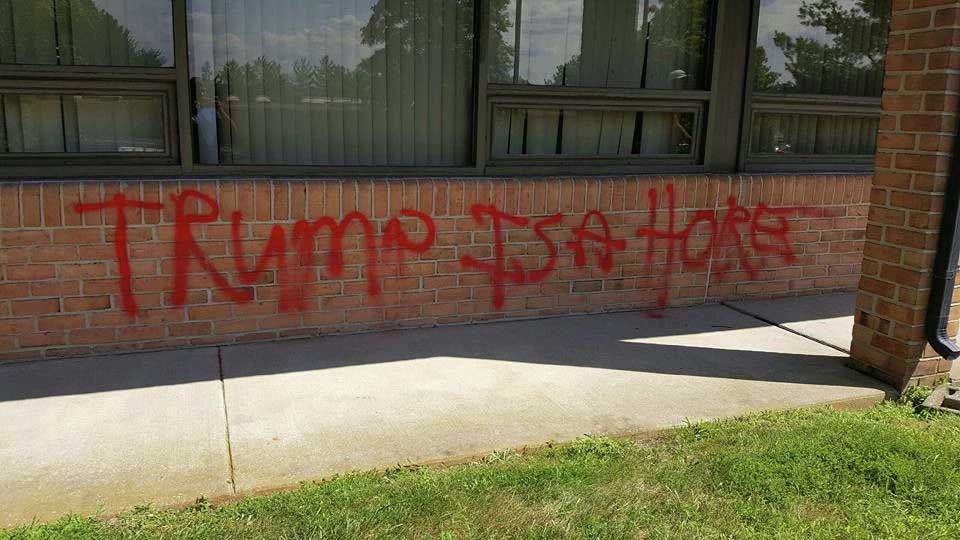 TRUMP IS A HORE